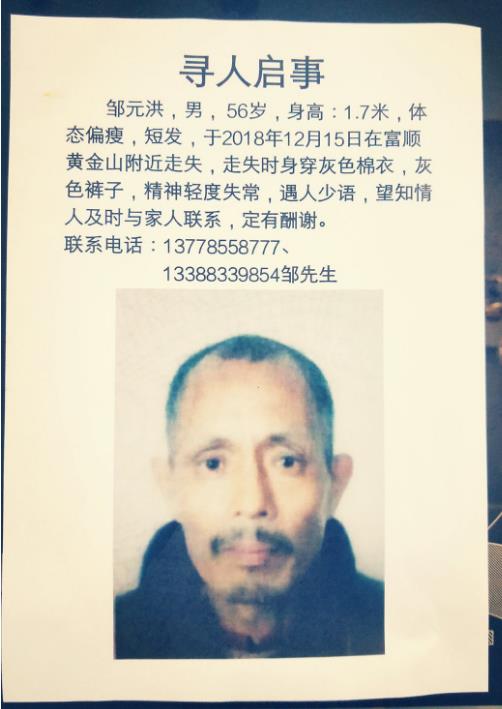 寻人启事
邹元洪，男， 56岁，身高：1.7米，体
态偏瘦，短发，于2018年12月15日在富顺
黄金山附近走失，走失时身穿灰色棉衣，灰
色裤子，精神轻度失常，遇人少语，望知情
人及时与家人联系，定有酬谢。
联系电话：13778558777、
13388339854邹先生